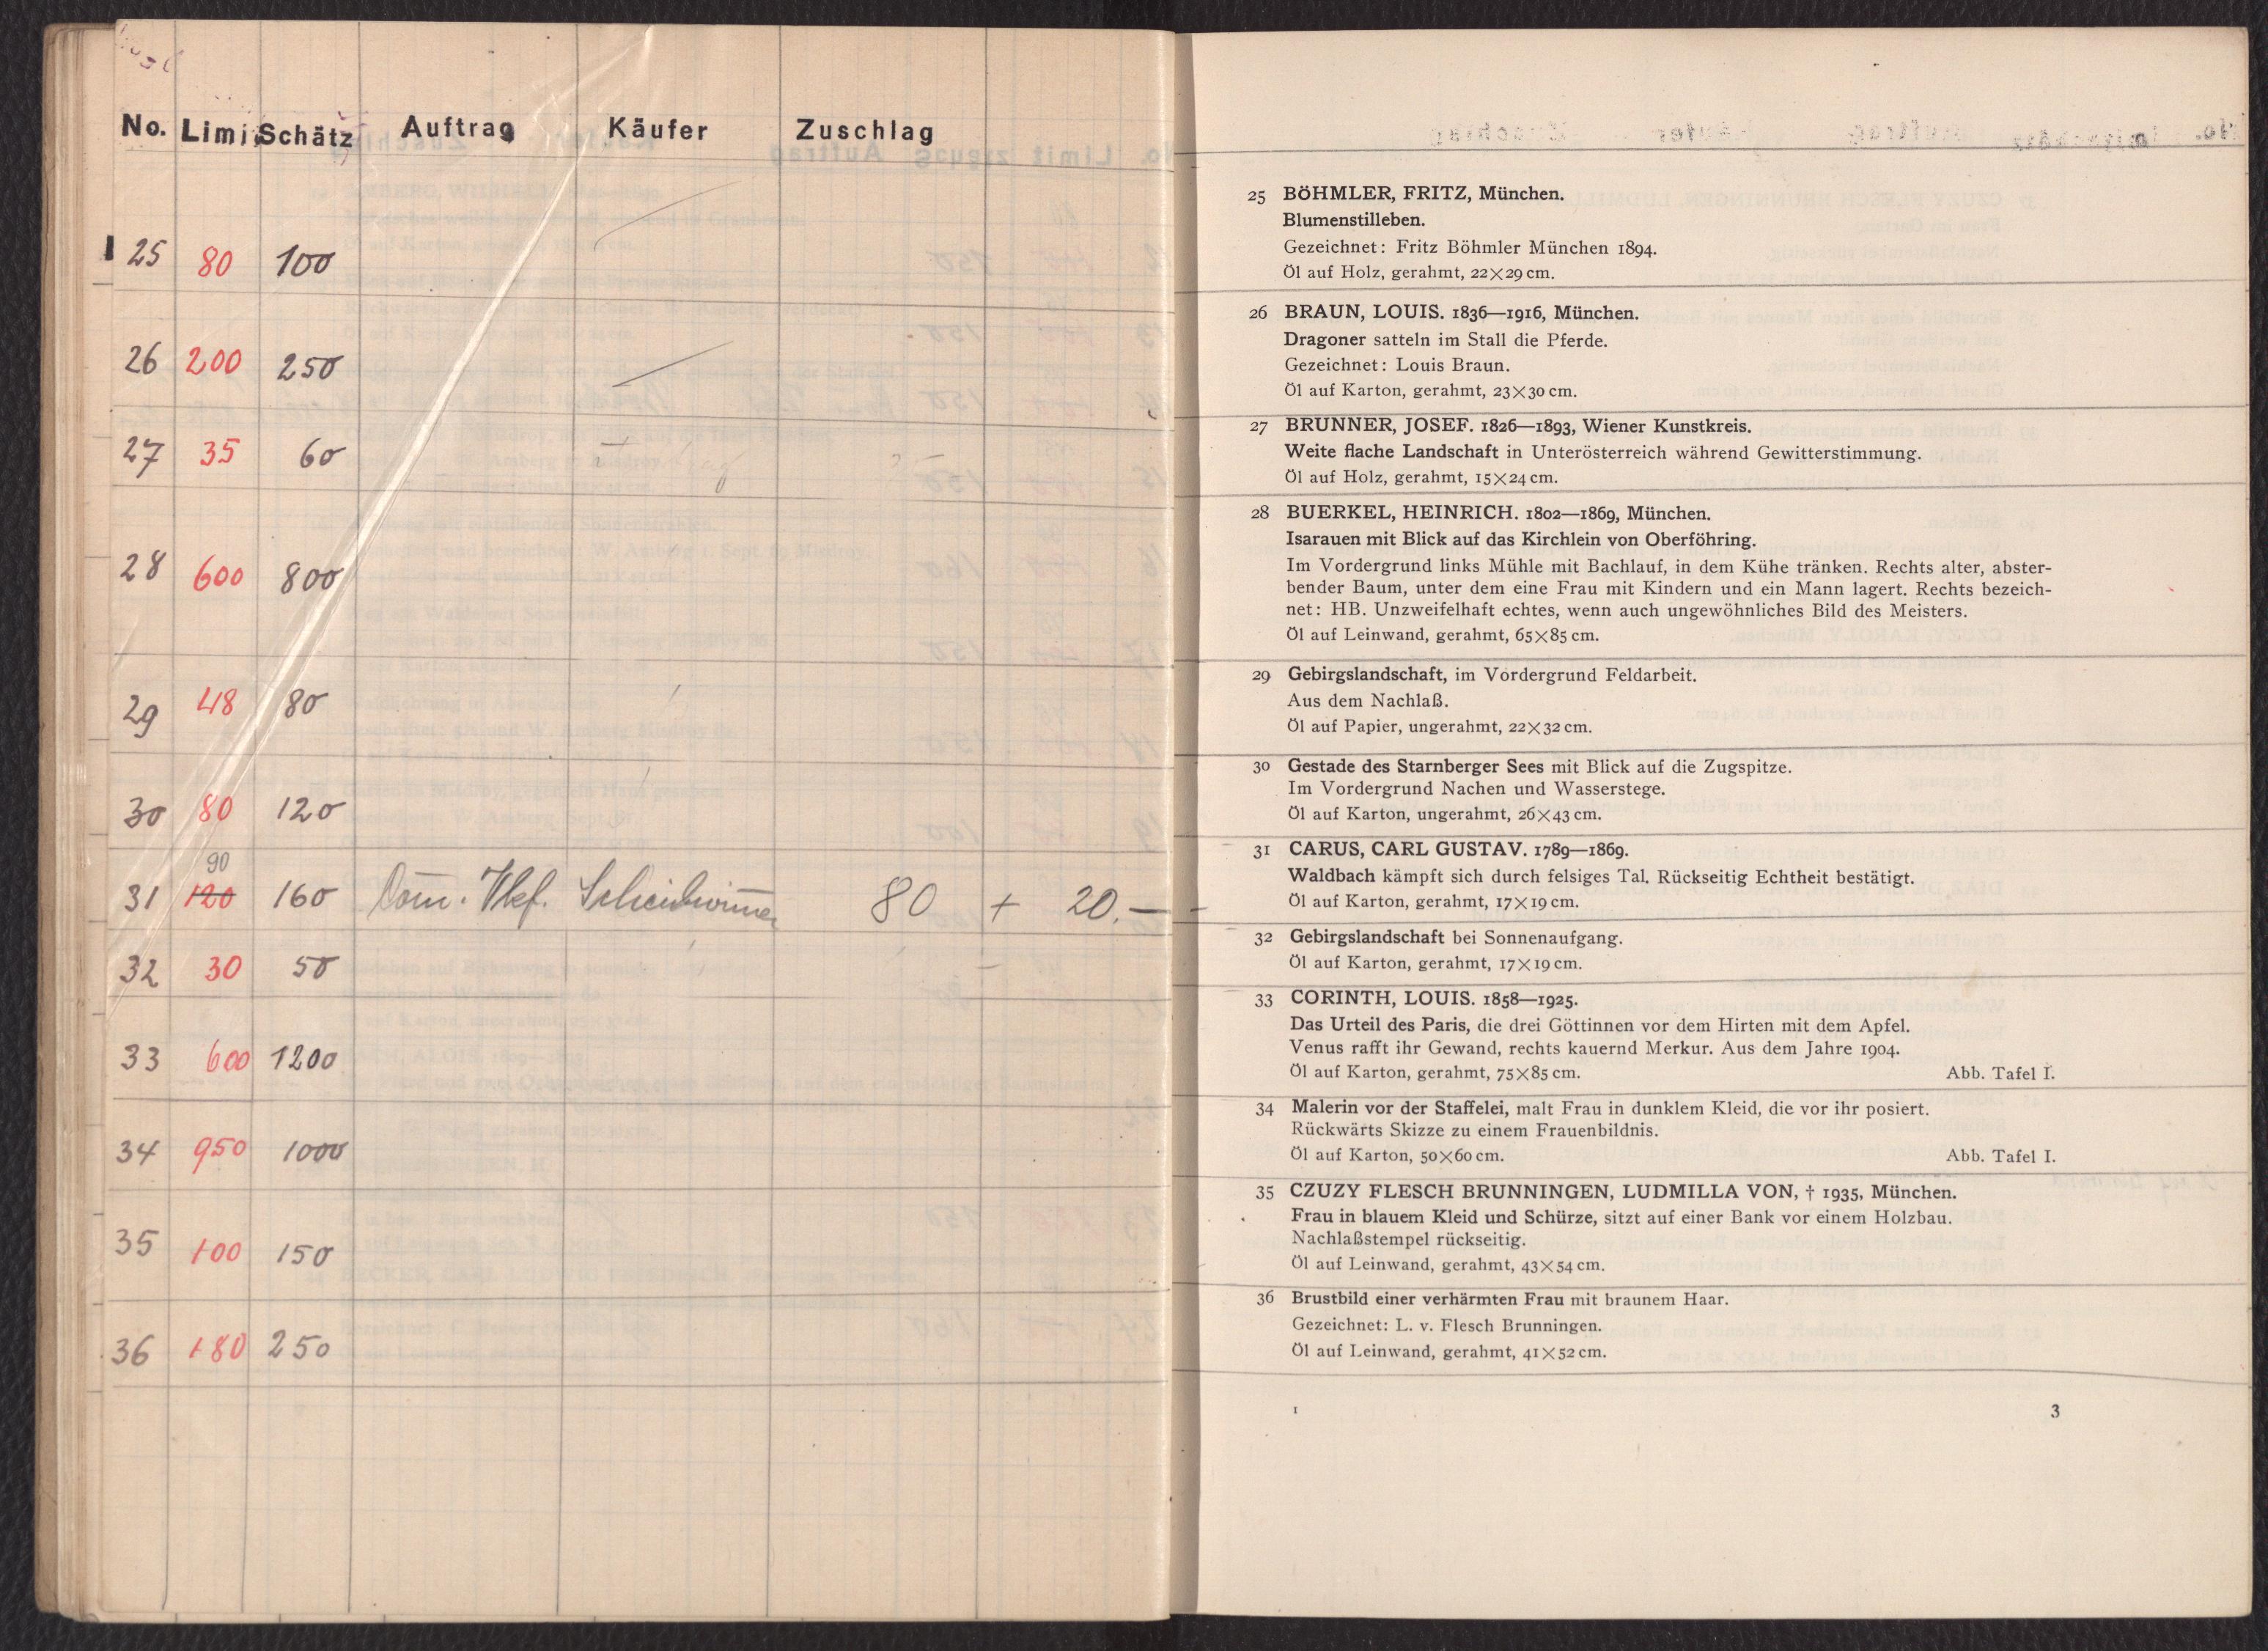 No. Limi Schätz Auftrag Käufer Zuschlag
25 80 100
26 200 250
27 35 60
28 600 800
29 48 80
30 80 120
90
31 120 160 Com. Vkf. 80 + 20.—
32 30 50
33 600 1200
34 950 1000
35 100 150
36 180 250
25 BÖHMLER, FRITZ, München.
Blumenstilleben.
Gezeichnet: Fritz Böhmler München 1894.
Öl auf Holz, gerahmt, 22×29 cm.
26 BRAUN, LOUIS. 1836—1916, München.
Dragoner satteln im Stall die Pferde.
Gezeichnet: Louis Braun.
Öl auf Karton, gerahmt, 23×30 cm.
27 BRUNNER, JOSEF. 1826—1893, Wiener Kunstkreis.
Weite flache Landschaft in Unterösterreich während Gewitterstimmung.
Öl auf Holz, gerahmt, 15×24 cm.
28 BUERKEL, HEINRICH. 1802—1869, München.
Isarauen mit Blick auf das Kirchlein von Oberföhring.
Im Vordergrund links Mühle mit Bachlauf, in dem Kühe tränken. Rechts alter, abster-
bender Baum, unter dem eine Frau mit Kindern und ein Mann lagert. Rechts bezeich-
net: HB. Unzweifelhaft echtes, wenn auch ungewöhnliches Bild des Meisters.
Öl auf Leinwand, gerahmt, 65×85 cm.
29 Gebirgslandschaft, im Vordergrund Feldarbeit.
Aus dem Nachlaß.
Öl auf Papier, ungerahmt, 22×32 cm.
30 Gestade des Starnberger Sees mit Blick auf die Zugspitze.
Im Vordergrund Nachen und Wasserstege.
Öl auf Karton, ungerahmt, 26×43 cm.
31 CARUS, CARL GUSTAV. 1789—1869.
Waldbach kämpft sich durch felsiges Tal. Rückseitig Echtheit bestätigt.
Öl auf Karton, gerahmt, 17×19 cm.
32 Gebirgslandschaft bei Sonnenaufgang.
Öl auf Karton, gerahmt, 17×19 cm.
33 CORINTH, LOUIS. 1858—1925.
Das Urteil des Paris, die drei Göttinnen vor dem Hirten mit dem Apfel.
Venus rafft ihr Gewand, rechts kauernd Merkur. Aus dem Jahre 1904.
Öl auf Karton, gerahmt, 75×85 cm. Abb. Tafel I.
34 Malerin vor der Staffelei, malt Frau in dunklem Kleid, die vor ihr posiert.
Rückwärts Skizze zu einem Frauenbildnis.
Öl auf Karton, 50×60 cm. Abb. Tafel I.
35 CZUZY FLESCH BRUNNINGEN, LUDMILLA VON, † 1935, München.
Frau in blauem Kleid und Schürze, sitzt auf einer Bank vor einem Holzbau.
Nachlaßstempel rückseitig.
Öl auf Leinwand, gerahmt, 43×54 cm.
36 Brustbild einer verhärmten Frau mit braunem Haar.
Gezeichnet: L. v. Flesch Brunningen.
Öl auf Leinwand, gerahmt, 41×52 cm.
1 3